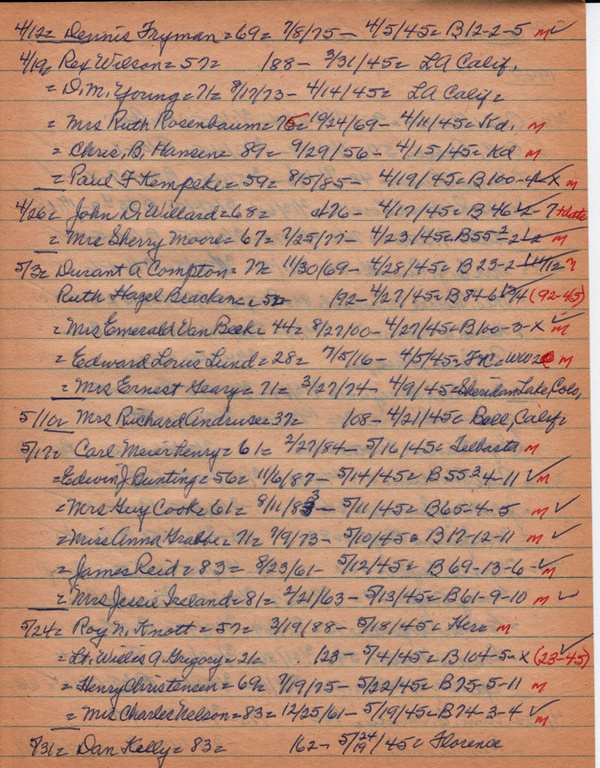 4/12= Dennis Fryman = 69= 7/8/75 - 4/5/45= B12-2-5 m✓
4/19= Rex Wilson = 57= /88 - 3/31/45= LA Calif.
= D.M. Young = 71= 8/17/73 - 4/14/45= LA Calif=
= Mrs Ruth Rosenbaum = 75= 10/24/69 - 4/11/45= Kd. m
= Chris. B. Hansen = 89= 9/29/56 - 4/15/45= Kd m
= Paul F Kempske = 59= 8/5/85 - 4/19/45= B100-4-X m
4/26= John D. Willard = 68= /76 - 4/17/45= B46 - 7
= Mrs Sherry Moore = 67= 7/25/77 - 4/23/45= B55²-2 m
5/3= Durant A Compton = 77= 11/30/69 - 4/28/45= B23-2 ?
Ruth Hazel Bracken = 52 /92 - 4/27/45= B84 (92-45)
= Mrs Emerald Van Beek = 44= 8/27/00 - 4/27/45= B100-3-X m
= Edward Louis Lund = 28= 7/5/16 - 4/5/45= WW2 m
= Mrs Ernest Geary = 71= 3/27/74 - 4/9/45= Sheridan Lake, Colo,
5/10= Mrs Richard Andrus = 37= /08 - 4/21/45= Bell, Calif
5/17= Carl Meier Henry = 61= 2/27/84 - 5/16/45= m
= Edwin J. Bunting = 56= 11/6/87 - 5/14/45= B55²4-11 ✓m
= Mrs Guy Cook = 61= 9/11/83 - 5/11/45= B65-4-5 m ✓
= Miss Anna Grabbe = 71= 7/9/73 - 5/10/45= B17-12-11 m ✓
= James Reid = 83= 8/23/61 - 5/12/45= B69-13-6 ✓m
= Mrs Jessie Iseland = 81= 2/21/63 - 5/13/45= B61-9-10 m ✓
5/24= Roy N. Knott = 57= 3/19/88 - 5/18/45= Here m
= Lt. Willis A. Gregory = 21= /23 - 5/4/45= B104-5-X (23-45)
= Henry Christensen = 69= 7/19/75 - 5/22/45= B75-5-11 m
= Mrs Charles Nelson = 83= 12/25/61 - 5/19/45= B74-3-4 ✓m
5/31= Dan Kelly = 83= /62 - 5/24/45= Florence